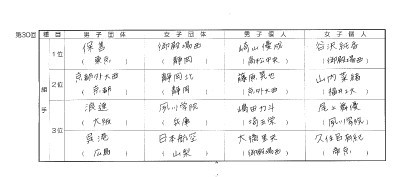 第30回
種目 男子団体 女子団体 男子個人 女子個人
組手
1位 保善 御殿場西 崎山優成 谷沢純香
(東京) (静岡) (高松中央) (御殿場西)
2位 京都外大西 静岡北 藤原 山内菜緒
(京都) (静岡) (福井工大)
3位 浪速 夙川学院 嶋田力斗 尾上
(大阪) (兵庫) (埼玉栄) (夙川学院)
呉港 日本航空 大橋 久住呂
(広島) (山梨) (御殿場西)